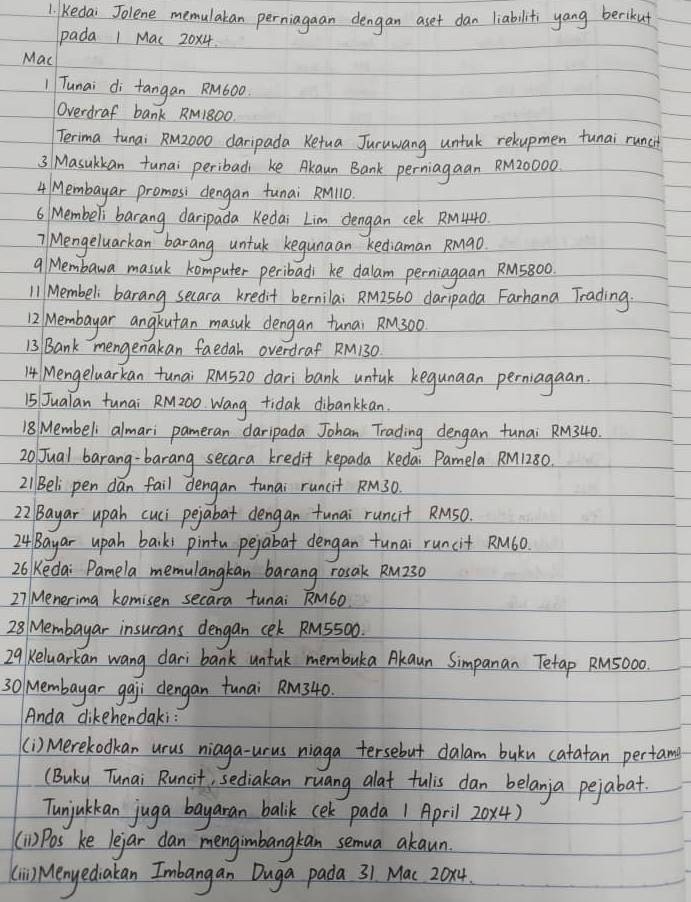 1. Kedai Jolene memulakan perniagaan dengan aset dan liabiliti yang berikut
pada 1 Mac 20X4.
Mac
1 Tunai di tangan RM600.
Overdraf bank RM1800.
Terima tunai RM2000 daripada Ketua Juruwang untuk rekupmen tunai runcit
3 Masukkan tunai peribadi ke Akaun Bank perniagaan RM20000.
4 Membayar promosi dengan tunai RM110.
6 Membeli barang daripada Kedai Lim dengan cek RM440.
7 Mengeluarkan barang untuk kegunaan kediaman RM90.
9 Membawa masuk komputer peribadi ke dalam perniagaan RM5800.
11 Membeli barang secara kredit bernilai RM2560 daripada Farhana Trading.
12 Membayar angkutan masuk dengan tunai RM300.
13 Bank mengenakan faedah overdraf RM130.
14 Mengeluarkan tunai RM520 dari bank untuk kegunaan perniagaan.
15 Jualan tunai RM200. Wang tidak dibankkan.
18 Membeli almari pameran daripada Johan Trading dengan tunai RM340.
20 Jual barang-barang secara kredit kepada Kedai Pamela RM1280.
21 Beli pen dan fail dengan tunai runcit RM30.
22 Bayar upah cuci pejabat dengan tunai runcit RM50.
24 Bayar upah baiki pintu pejabat dengan tunai runcit RM60.
26 Kedai Pamela memulangkan barang rosak RM230
27 Menerima komisen secara tunai RM60.
28 Membayar insurans dengan cek RM5500.
29 Keluarkan wang dari bank untuk membuka Akaun Simpanan Tetap RM5000.
30 Membayar gaji dengan tunai RM340.
Anda dikehendaki:
(i) Merekodkan urus niaga-urus niaga tersebut dalam buku catatan pertama
(Buku Tunai Runcit, sediakan ruang alat tulis dan belanja pejabat.
Tunjukkan juga bayaran balik cek pada 1 April 20X4)
(ii) Pos ke lejar dan mengimbangkan semua akaun.
(iii) Menyediakan Imbangan Duga pada 31 Mac 20X4.